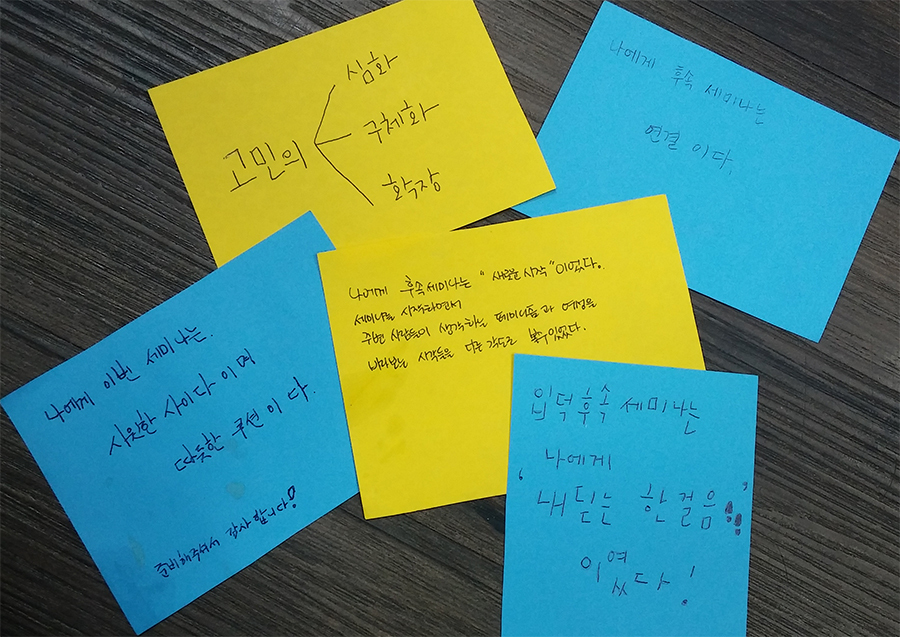 고민의
심화
구체화
확장
나에게 후속 세미나는
연결 이다.
나에게 이번 세미나는.
시원한 사이다 이며
따뜻한 쿠션 이 다.
준비해주셔서 감사 합니다!
나에게 후속세미나는 "새로운 시작"이었다.
세미나를 시작하면서
주변 사람들이 생각하는 페미니즘과 여성을
바라보는 시각들을 다른 각도로 볼수있었다.
후속 세미나는
나에게
'내딛는 한걸음!!'
이었다!